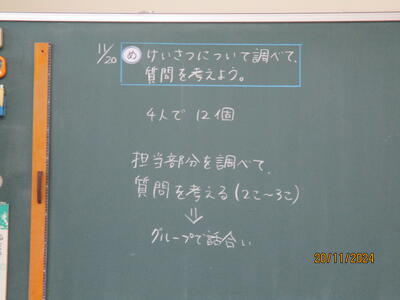 11/20
め けいさつについて調べて、
質問を考えよう。
4人で 12個
担当部分を調べて、
質問を考える(2こ〜3こ)
⇓
グループで話合い
20/11/2024